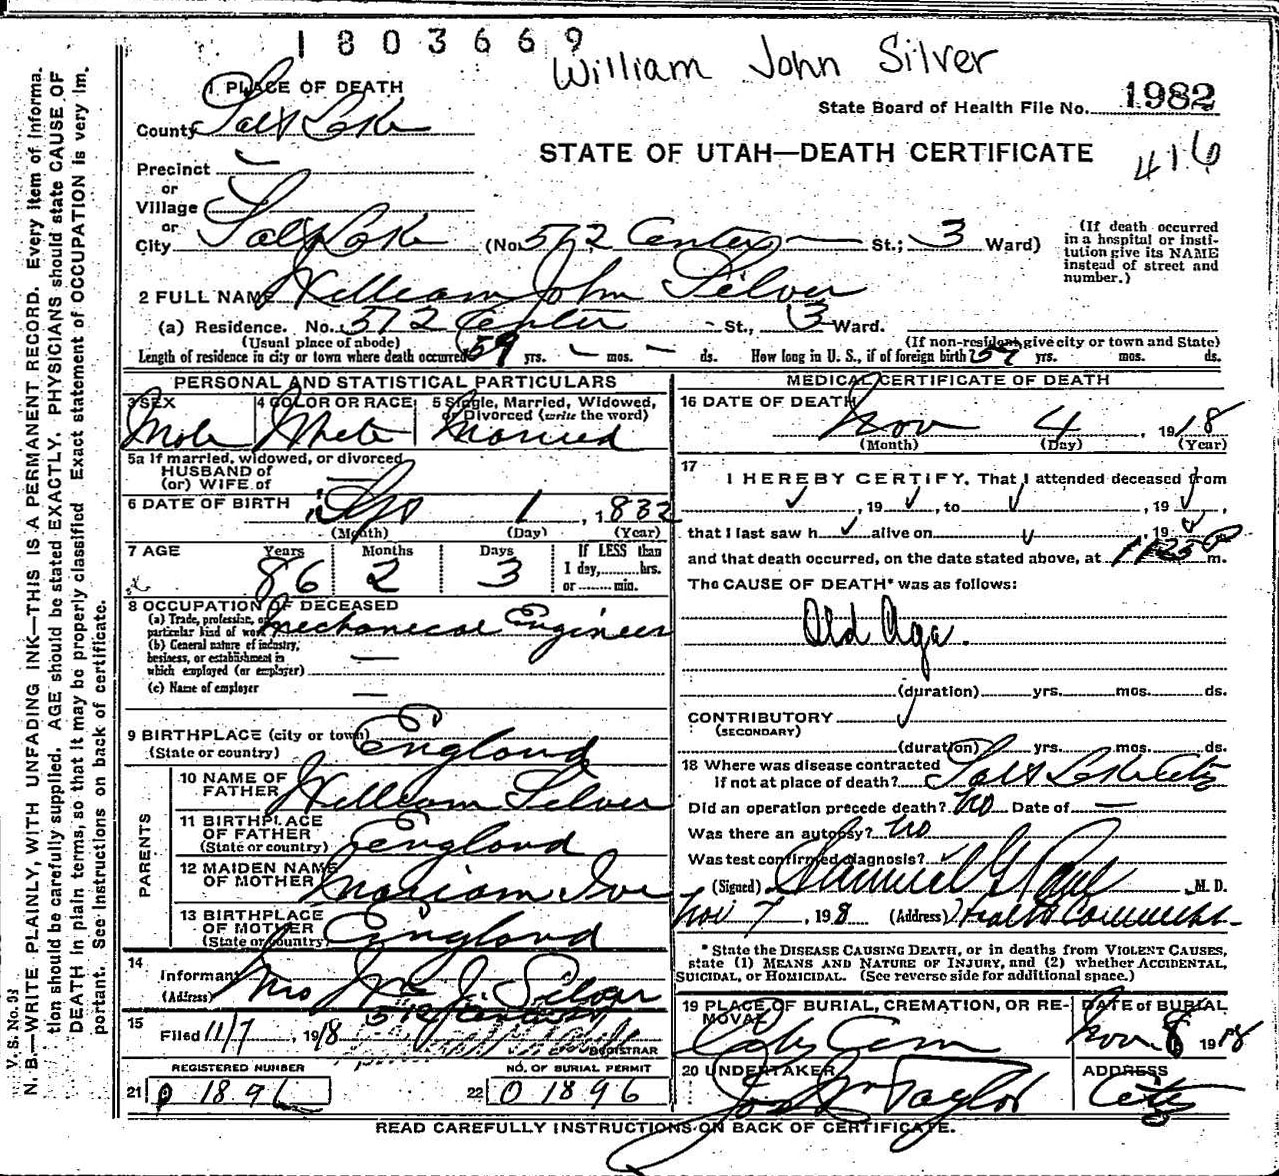 1803669
William John Silver
1 PLACE OF DEATH
State Board of Health File No. 1982
County Salt Lake
STATE OF UTAH—DEATH CERTIFICATE
416
Precinct
or
Village
or
City Salt Lake (No. 572 Center St.; 3 Ward)
(If death occurred in a hospital or insti-
tution give its NAME
instead of street and
number.)
2 FULL NAME William John Silver
(a) Residence. No. 572 Center St., 3 Ward.
(Usual place of abode) (If non-resident, give city or town and State)
Length of residence in city or town where death occurred 59 yrs. — mos. — ds. How long in U. S., if of foreign birth? 59 yrs. mos. ds.
PERSONAL AND STATISTICAL PARTICULARS
3 SEX 4 COLOR OR RACE 5 Single, Married, Widowed,
or Divorced (write the word)
Male White Married
5a If married, widowed, or divorced
HUSBAND of
(or) WIFE of
6 DATE OF BIRTH Sep 1, 1832
(Month) (Day) (Year)
7 AGE Years Months Days If LESS than
1 day, hrs.
or min.
86 2 3
8 OCCUPATION OF DECEASED
(a) Trade, profession, or
particular kind of work Mechanical Engineer
(b) General nature of industry,
business, or establishment in
which employed (or employer) —
(c) Name of employer —
9 BIRTHPLACE (city or town)
(State or country) England
PARENTS
10 NAME OF
FATHER William Silver
11 BIRTHPLACE
OF FATHER
(State or country) England
12 MAIDEN NAME
OF MOTHER
13 BIRTHPLACE
OF MOTHER
(State or country) England
14
Informant Mrs Wm J. Silver
(Address) 572 Center St
15
Filed 11/7, 1918
REGISTRAR
REGISTERED NUMBER NO. OF BURIAL PERMIT
21 0 1896 22 0 1896
MEDICAL CERTIFICATE OF DEATH
16 DATE OF DEATH
Nov 4, 1918
(Month) (Day) (Year)
17
I HEREBY CERTIFY, That I attended deceased from
, 19 , to , 19 ,
that I last saw h alive on , 19
and that death occurred, on the date stated above, at 1125 P m.
The CAUSE OF DEATH* was as follows:
Old Age.
(duration) yrs. mos. ds.
CONTRIBUTORY
(SECONDARY)
(duration) yrs. mos. ds.
18 Where was disease contracted
if not at place of death? Salt Lake City
Did an operation precede death? No Date of —
Was there an autopsy? No
Was test confirmed diagnosis?
(Signed) Samuel G Paul M. D.
Nov 7, 1918 (Address) Health Commiss.
* State the DISEASE CAUSING DEATH, or in deaths from VIOLENT CAUSES,
state (1) MEANS AND NATURE OF INJURY, and (2) whether ACCIDENTAL,
SUICIDAL, or HOMICIDAL. (See reverse side for additional space.)
19 PLACE OF BURIAL, CREMATION, OR RE-
MOVAL DATE of BURIAL
City Cem Nov. 8 1918
20 UNDERTAKER ADDRESS
Jos Wm Taylor City
READ CAREFULLY INSTRUCTIONS ON BACK OF CERTIFICATE.
V. S. No. 33
N. B.—WRITE PLAINLY, WITH UNFADING INK—THIS IS A PERMANENT RECORD. Every item of informa-
tion should be carefully supplied. AGE should be stated EXACTLY. PHYSICIANS should state CAUSE OF
DEATH in plain terms, so that it may be properly classified. Exact statement of OCCUPATION is very im-
portant. See Instructions on back of certificate.